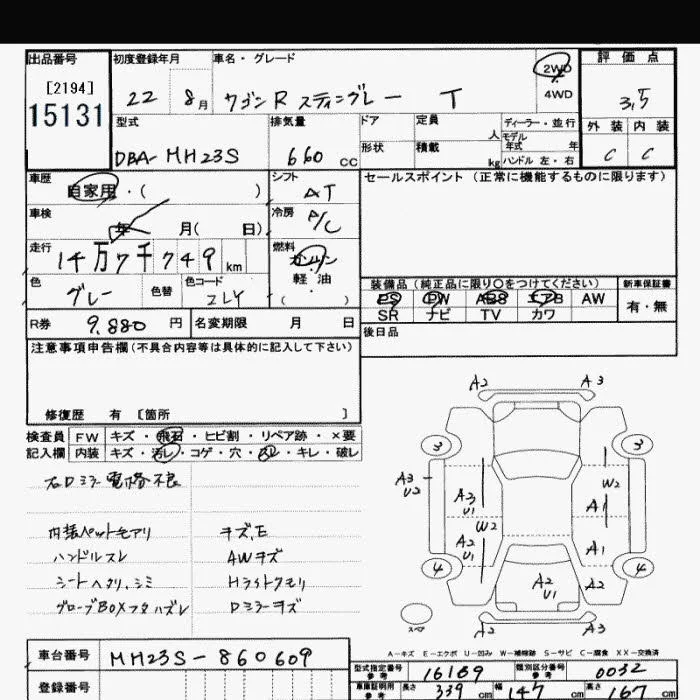 出品番号 初度登録年月 車名・グレード 2WD 評価点
[2194] 4WD
15131 22 8月 ワゴンR スティングレー T 3,5
型式 排気量 ドア 定員 ディーラー・並行 外装 内装
人 モデル年式 年
DBA-MH23S 660 cc 形状 積載 kg ハンドル 左・右 C C
車歴 自家用・( ) シフト AT セールスポイント (正常に機能するものに限ります)
車検 年 月( 日) 冷房 A/C
走行 14万7千749km 燃料 ガソリン
軽油
( )
色 グレー 色替 色コード ZLY
装備品 (純正品に限り○をつけてください) 新車保証書
PS PW ABS エアB AW 有・無
SR ナビ TV カワ
R券 9,880 円 名変期限 月 日 後日品
注意事項申告欄(不具合内容等は具体的に記入して下さい)
修復歴 有 [箇所 ]
検査員 FW キズ・飛石・ヒビ割・リペア跡・×要
記入欄 内装 キズ・汚レ・コゲ・穴・スレ・キレ・破レ
右Dミラー電格不良
内張ペットモアリ キズ、E
ハンドルスレ AWキズ
シートヘタリ、シミ Hライトクモリ
グローブBOXフタハズレ Dミラーキズ
A2 A3
3 3
A3 U2 A3 U1 W2 W2 A1
A2 U1 A1
4 A2 U1 A2 4
スペア A2 A3
A-キズ E-エクボ U-凹み W-補修跡 S-サビ C-腐食 XX-交換済
車台番号 MH23S-860609
型式指定番号 参考 16189 類別区分番号 参考 0032
登録番号 車庫証明用 参考 長さ 339 cm 幅 147 cm 高さ 167 cm